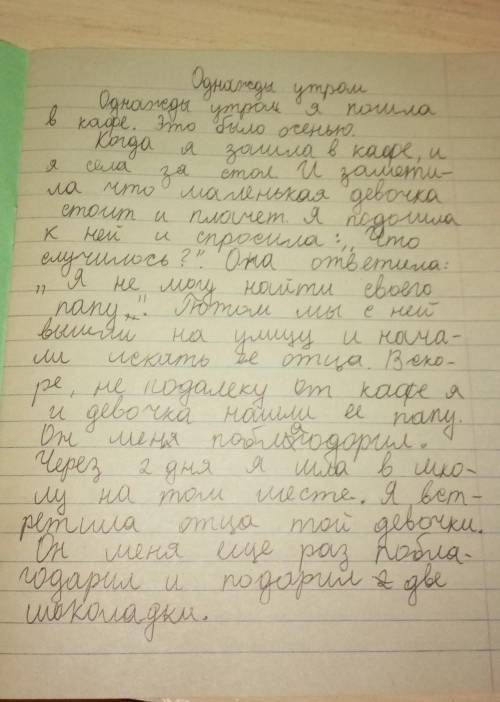 Однажды утром
Однажды утром я пошла
в кафе. Это было осенью.
Когда я зашла в кафе, и
я села за стол И замети-
ла что маленькая девочка
стоит и плачет. Я подошла
к ней и спросила: „Что
случилось?". Она ответила:
„Я не могу найти своего
папу„". Потом мы с ней
вышли на улицу и нача-
ли искать ее отца. Вско-
ре, не подалеку от кафе я
и девочка нашли ее папу.
Он меня поблагодорил.
Через 2 дня я шла в шко-
лу на том месте. Я вст-
ретила отца той девочки.
Он меня еще раз побла-
годарил и подарил две
шоколадки.